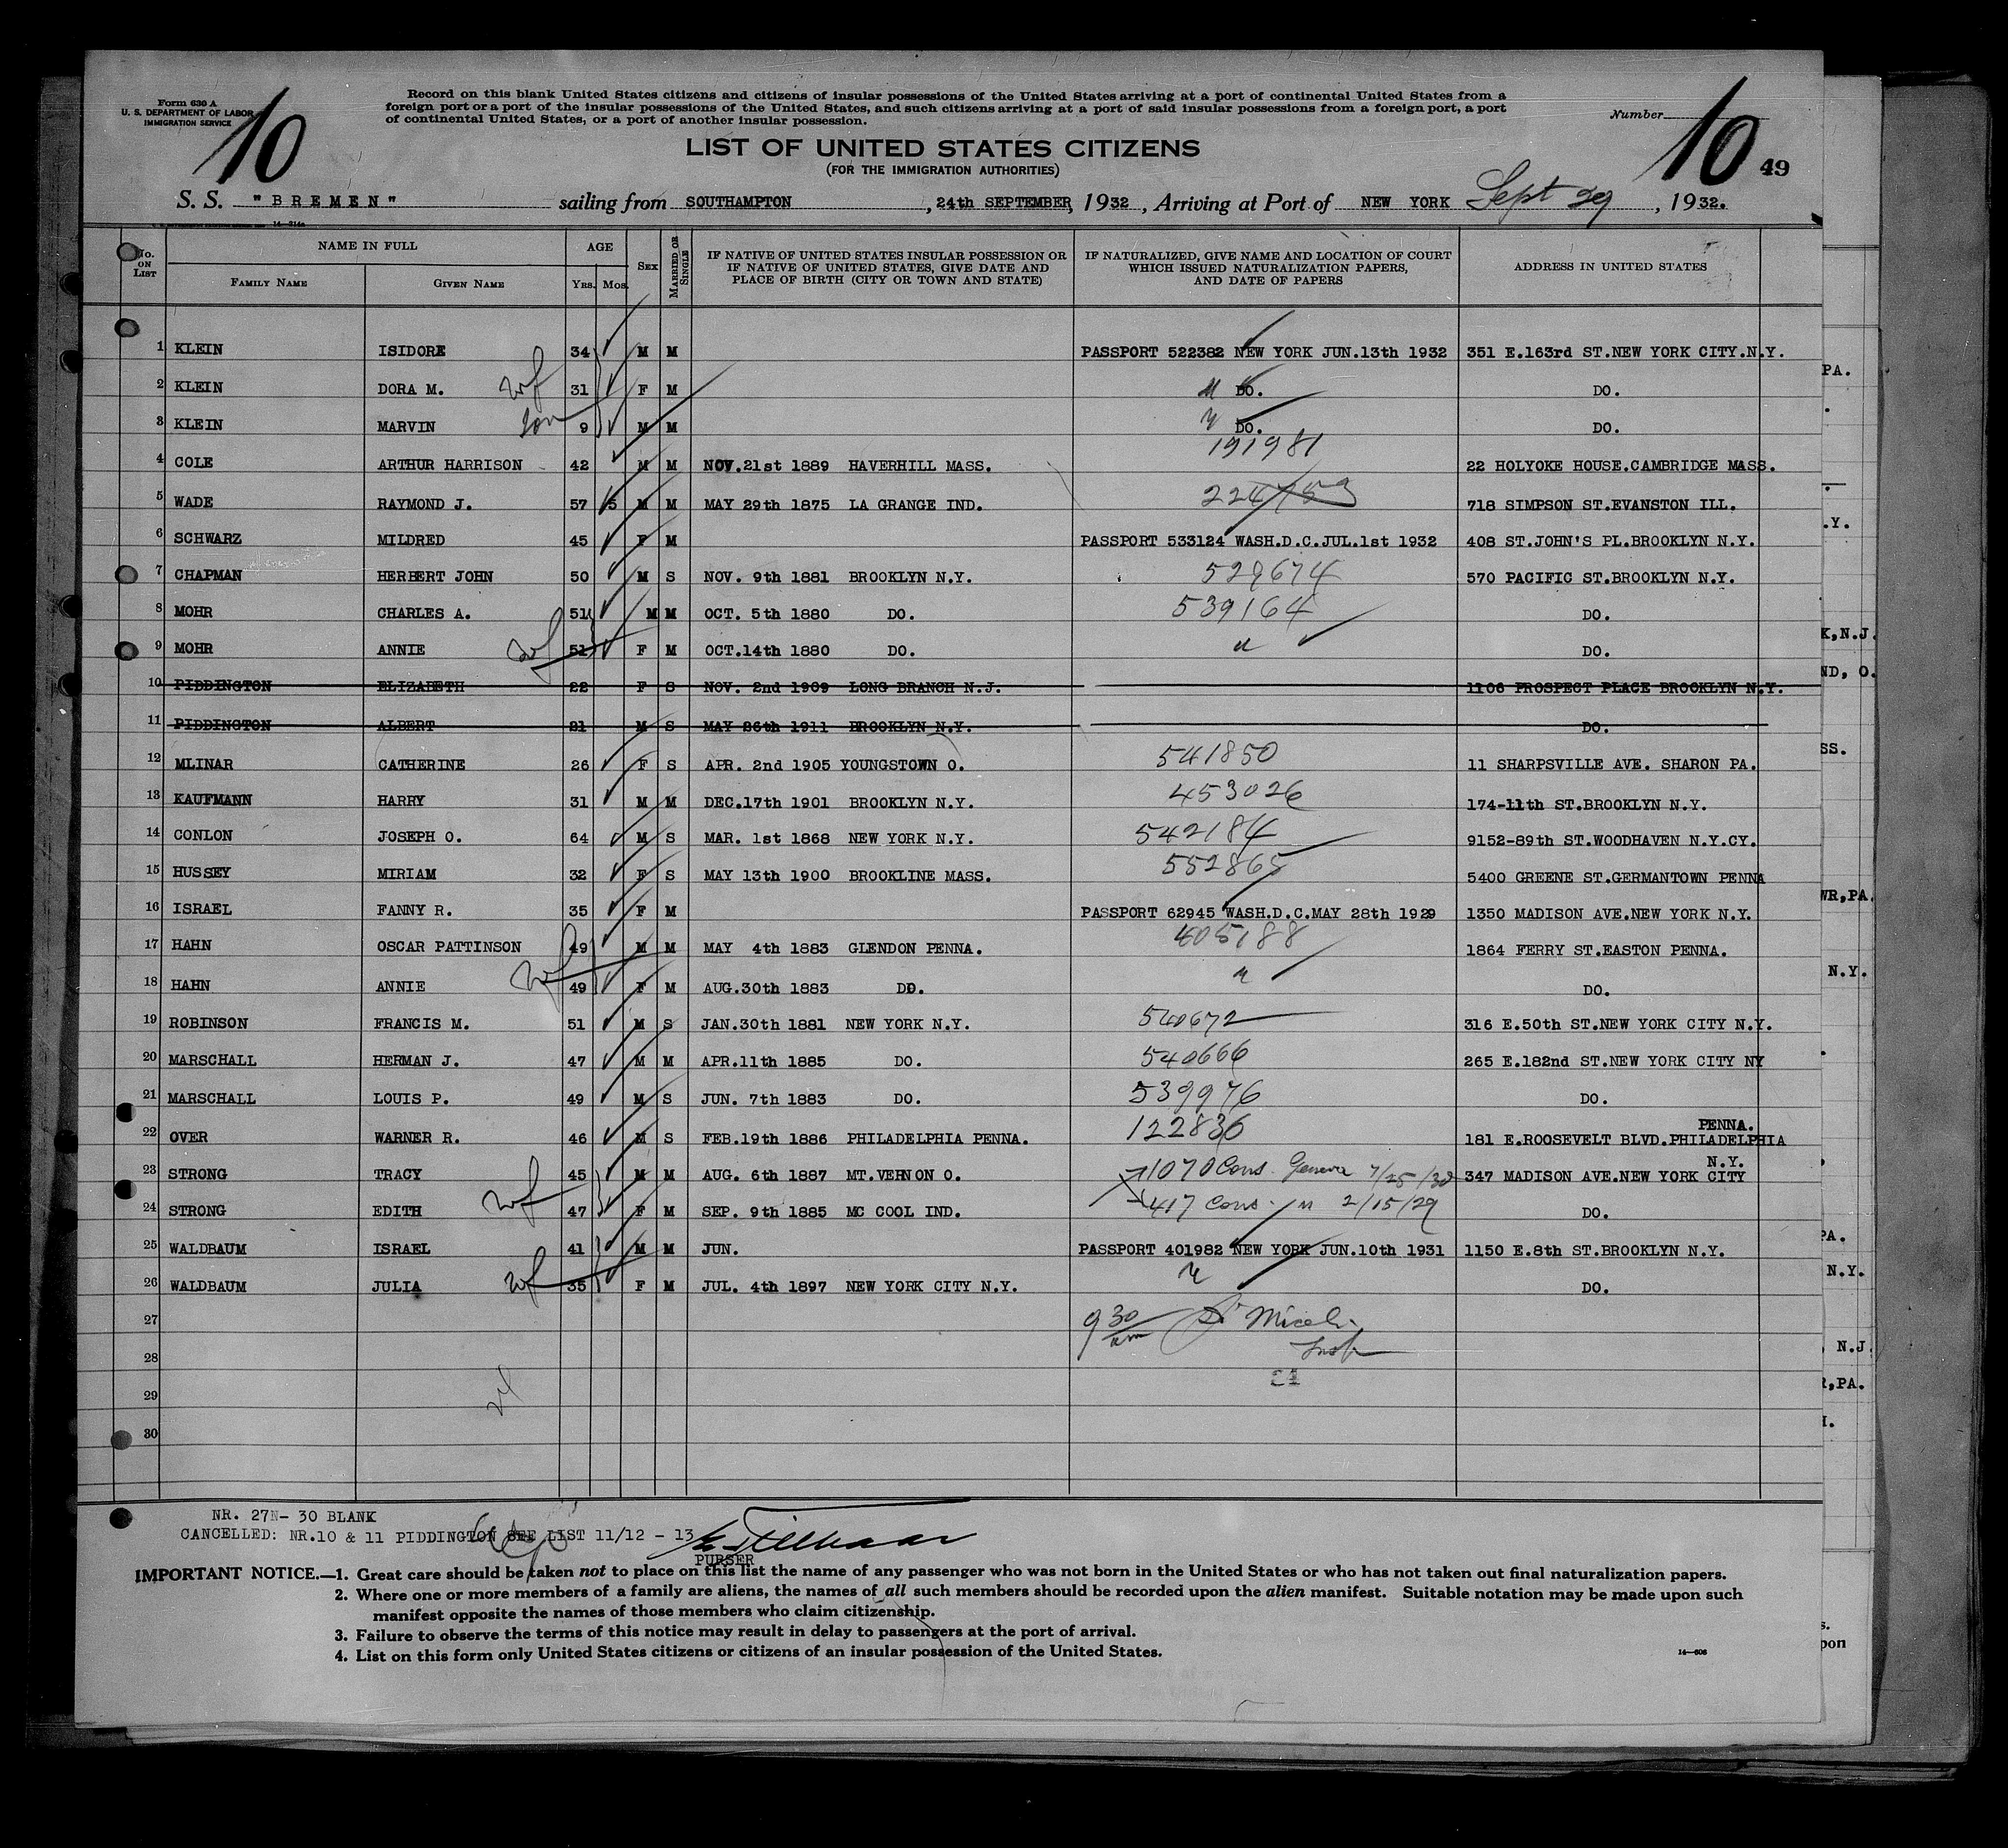 Form 630 A
U. S. DEPARTMENT OF LABOR
IMMIGRATION SERVICE
10
Record on this blank United States citizens and citizens of insular possessions of the United States arriving at a port of continental United States from a
foreign port or a port of the insular possessions of the United States, and such citizens arriving at a port of said insular possessions from a foreign port, a port
of continental United States, or a port of another insular possession.
Number
10
49
LIST OF UNITED STATES CITIZENS
(FOR THE IMMIGRATION AUTHORITIES)
S. S. "BREMEN" sailing from SOUTHAMPTON, 24th SEPTEMBER, 1932, Arriving at Port of NEW YORK Sept 29, 1932.
No. ON LIST NAME IN FULL FAMILY NAME GIVEN NAME AGE YRS. MOS. SEX MARRIED OR SINGLE IF NATIVE OF UNITED STATES INSULAR POSSESSION OR IF NATIVE OF UNITED STATES, GIVE DATE AND PLACE OF BIRTH (CITY OR TOWN AND STATE) IF NATURALIZED, GIVE NAME AND LOCATION OF COURT WHICH ISSUED NATURALIZATION PAPERS, AND DATE OF PAPERS ADDRESS IN UNITED STATES
1 KLEIN ISIDORE 34 M M PASSPORT 522382 NEW YORK JUN.13th 1932 351 E.163rd ST.NEW YORK CITY.N.Y.
2 KLEIN DORA M. wf 31 F M DO. DO.
3 KLEIN MARVIN son 9 M M DO. DO.
4 COLE ARTHUR HARRISON 42 M M NOV.21st 1889 HAVERHILL MASS. 191981 22 HOLYOKE HOUSE.CAMBRIDGE MASS.
5 WADE RAYMOND J. 57 5 M M MAY 29th 1875 LA GRANGE IND. 224753 718 SIMPSON ST.EVANSTON ILL.
6 SCHWARZ MILDRED 45 F M PASSPORT 533124 WASH.D.C.JUL.1st 1932 408 ST.JOHN'S PL.BROOKLYN N.Y.
7 CHAPMAN HERBERT JOHN 50 M S NOV. 9th 1881 BROOKLYN N.Y. 529674 570 PACIFIC ST.BROOKLYN N.Y.
8 MOHR CHARLES A. 51 M M OCT. 5th 1880 DO. 539164 DO.
9 MOHR ANNIE wf 51 F M OCT.14th 1880 DO. " DO.
10 PIDDINGTON ELIZABETH 22 F S NOV. 2nd 1909 LONG BRANCH N.J. 1106 PROSPECT PLACE BROOKLYN N.Y.
11 PIDDINGTON ALBERT 21 M S MAY 26th 1911 BROOKLYN N.Y. DO.
12 MLINAR CATHERINE 26 F S APR. 2nd 1905 YOUNGSTOWN O. 541850 11 SHARPSVILLE AVE. SHARON PA.
13 KAUFMANN HARRY 31 M M DEC.17th 1901 BROOKLYN N.Y. 453026 174-11th ST.BROOKLYN N.Y.
14 CONLON JOSEPH O. 64 M S MAR. 1st 1868 NEW YORK N.Y. 542184 9152-89th ST.WOODHAVEN N.Y.CY.
15 HUSSEY MIRIAM 32 F S MAY 13th 1900 BROOKLINE MASS. 552865 5400 GREENE ST.GERMANTOWN PENNA
16 ISRAEL FANNY R. 35 F M PASSPORT 62945 WASH.D.C.MAY 28th 1929 1350 MADISON AVE.NEW YORK N.Y.
17 HAHN OSCAR PATTINSON 49 M M MAY 4th 1883 GLENDON PENNA. 405188 1864 FERRY ST.EASTON PENNA.
18 HAHN ANNIE wf 49 F M AUG.30th 1883 DO. " DO.
19 ROBINSON FRANCIS M. 51 M S JAN.30th 1881 NEW YORK N.Y. 540672 316 E.50th ST.NEW YORK CITY N.Y.
20 MARSCHALL HERMAN J. 47 M M APR.11th 1885 DO. 540666 265 E.182nd ST.NEW YORK CITY NY
21 MARSCHALL LOUIS P. 49 M S JUN. 7th 1883 DO. 539976 DO.
22 OVER WARNER R. 46 M S FEB.19th 1886 PHILADELPHIA PENNA. 122836 181 E.ROOSEVELT BLVD.PHILADELPHIA PENNA.
23 STRONG TRACY 45 M M AUG. 6th 1887 MT.VERNON O. 1070 Cons. Geneva 7/25/30 347 MADISON AVE.NEW YORK CITY N.Y.
24 STRONG EDITH wf 47 F M SEP. 9th 1885 MC COOL IND. 417 Cons. " 2/15/29 DO.
25 WALDBAUM ISRAEL 41 M M JUN. PASSPORT 401982 NEW YORK JUN.10th 1931 1150 E.8th ST.BROOKLYN N.Y.
26 WALDBAUM JULIA wf 35 F M JUL. 4th 1897 NEW YORK CITY N.Y. " DO.
27 9 30 am Miceli
28 Insp
24
29
30
NR. 27N- 30 BLANK
CANCELLED: NR.10 & 11 PIDDINGTON SEE LIST 11/12 - 13
PURSER
IMPORTANT NOTICE.—1. Great care should be taken not to place on this list the name of any passenger who was not born in the United States or who has not taken out final naturalization papers.
2. Where one or more members of a family are aliens, the names of all such members should be recorded upon the alien manifest. Suitable notation may be made upon such
manifest opposite the names of those members who claim citizenship.
3. Failure to observe the terms of this notice may result in delay to passengers at the port of arrival.
4. List on this form only United States citizens or citizens of an insular possession of the United States.
14—606